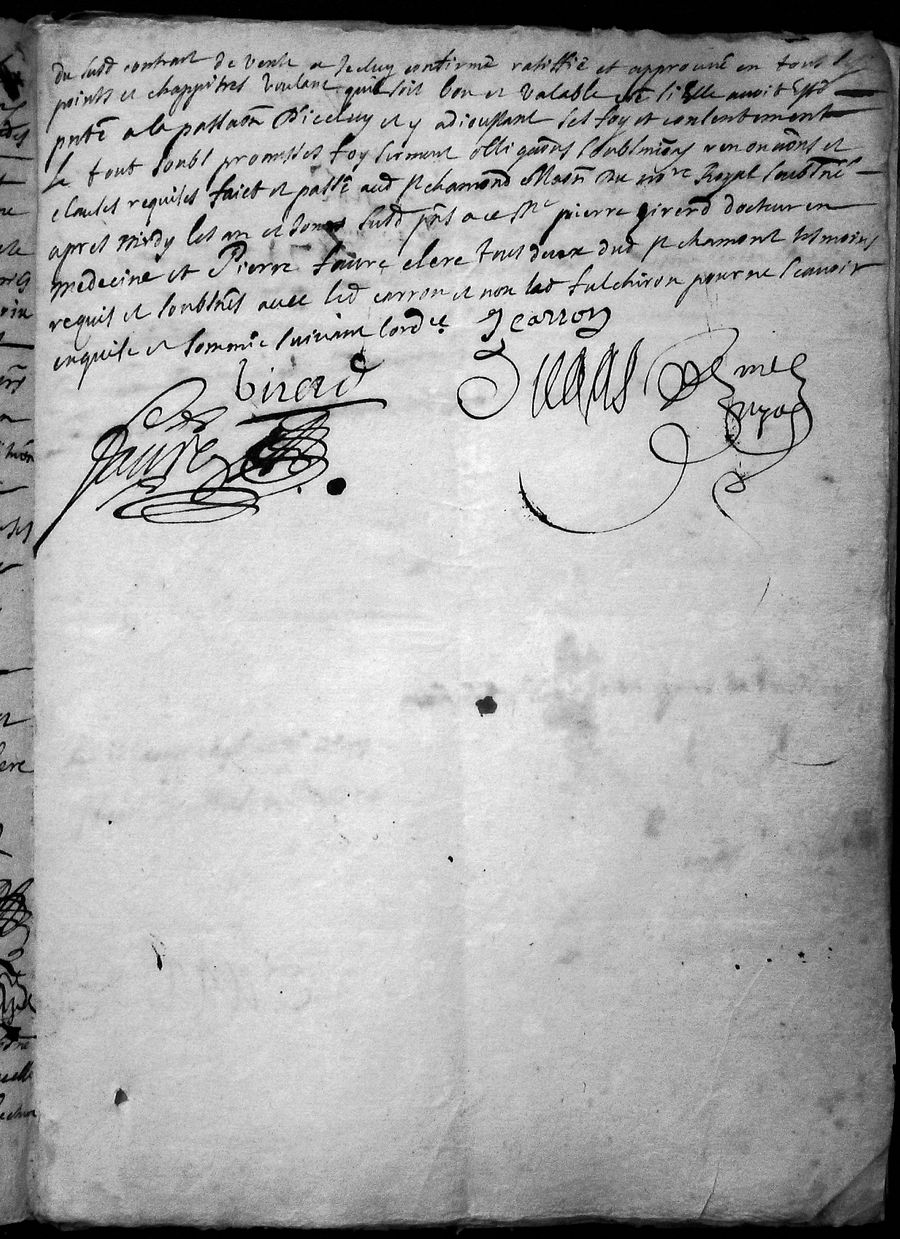 du susd contract de vente a Icelluy confirmé ratiffié et approuvé en tous s
points et chappittres voulant quil soit bon et valable comme si elle avoit esté
pnte a la passaon d'icelluy et y adioustant ses foy et contentement
Le tout soubz promesses foy serment obliganons soubzmions renonaons et
clauses requises faict et passé aud st chamond maison du nore Royal soubzné
apres midy les an et Jour susd pnts a ce Me pierre girerd docteur en
medecine et Pierre faure clerc tous deux dud st chamont tesmoins
requis et soubznés avec led carron et non lad fulchiron pour ne scavoir
enquise et sommée suivant lordce Jcarron
Girerd
faure